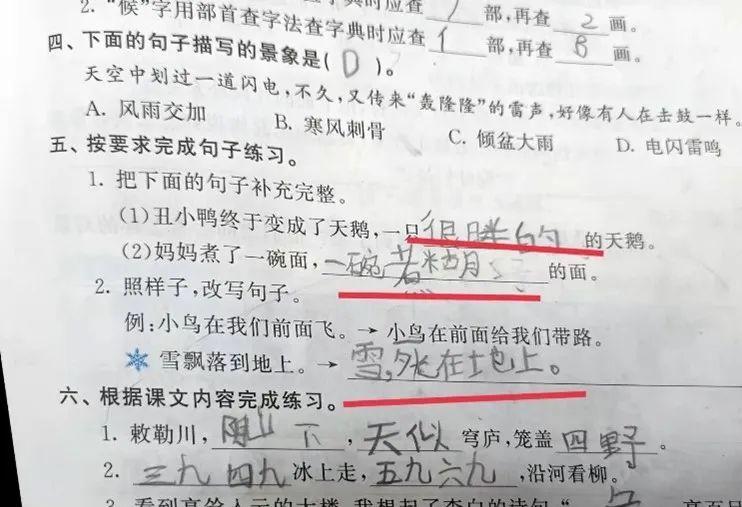 2. “候”字用部首查字法查字典时应查 亻 部,再查 8 画。
四、下面的句子描写的景象是( D )。
天空中划过一道闪电,不久,又传来“轰隆隆”的雷声,好像有人在击鼓一样。
A. 风雨交加 B. 寒风刺骨 C. 倾盆大雨 D. 电闪雷鸣
五、按要求完成句子练习。
1. 把下面的句子补充完整。
(1)丑小鸭终于变成了天鹅,一只很胖的 的天鹅。
(2)妈妈煮了一碗面,一碗煮糊 的面。
2. 照样子,改写句子。
例:小鸟在我们前面飞。→ 小鸟在前面给我们带路。
雪飘落到地上。→ 雪,死在土地上。
六、根据课文内容完成练习。
1. 敕勒川,阴山下,天似 穹庐,笼盖 四野。
2. 三九四九 冰上走,五九六九,沿河看柳。